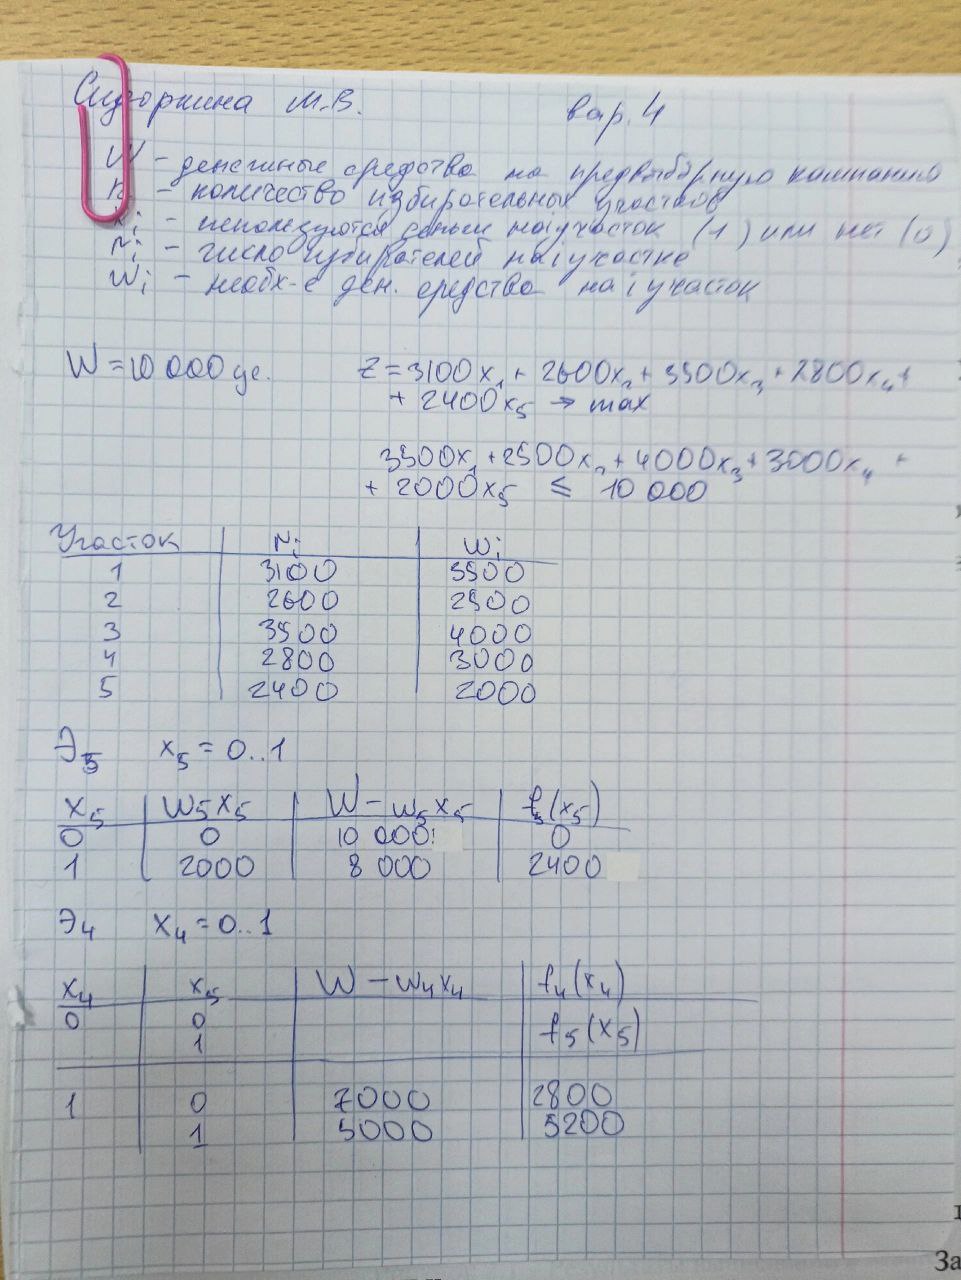 Сидоркина М.В. вар. 4
W – денежные средства на предвыборную кампанию
n – количество избирательных участков
xi – используются деньги на i участок (1) или нет (0)
Ni – число избирателей на i участке
Wi – необх-е ден. средства на i участок
W = 10 000 уе. Z = 3100x1 + 2600x2 + 3500x3 + 2800x4 +
+ 2400x5 → max
3500x1 + 2500x2 + 4000x3 + 3000x4 +
+ 2000x5 ≤ 10 000
Участок Ni Wi
1 3100 3500
2 2600 2500
3 3500 4000
4 2800 3000
5 2400 2000
Э5 x5 = 0..1
x5 W5x5 W – w5x5 f5(x5)
0 0 10 000 0
1 2000 8 000 2400
Э4 x4 = 0..1
x4 x5 W – w4x4 f4(x4)
0 0
1 f5(x5)
1 0 7000 2800
1 5000 5200
За